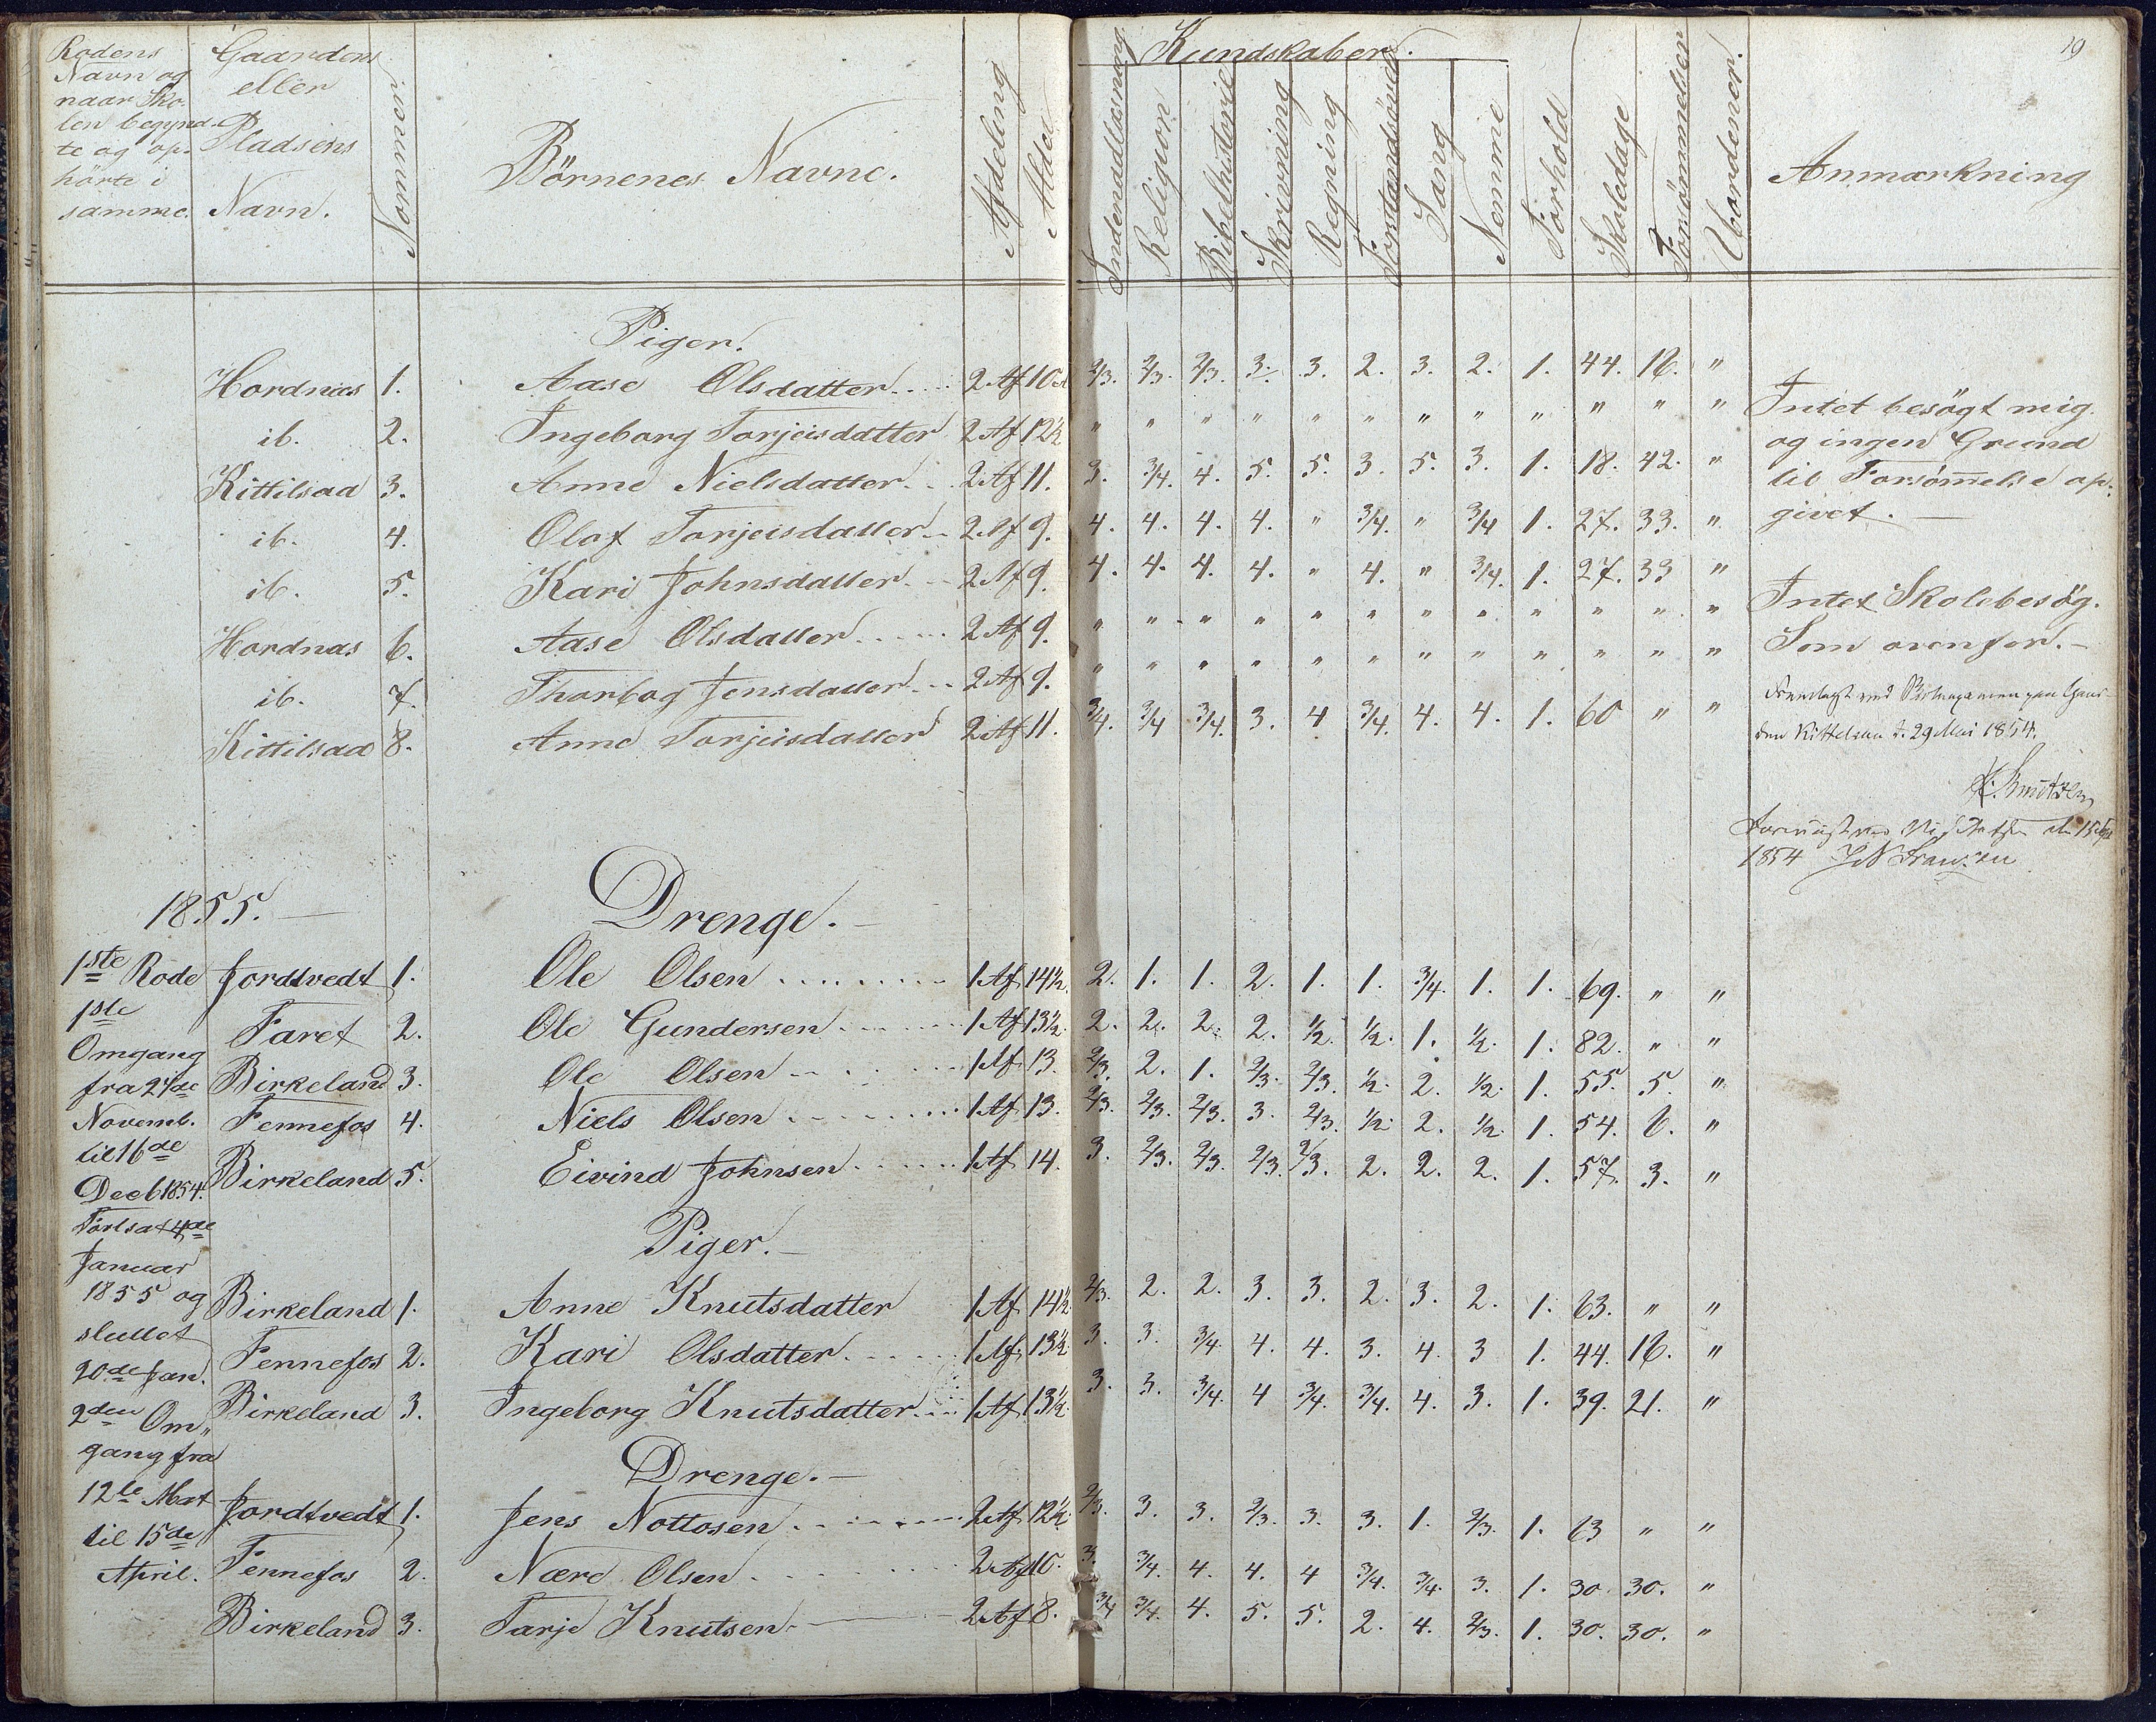 19
Rodens Navn og naar Sko- len begynd- te og op- hörte i samme.
Gaardens eller Pladsens Navn.
Nommer.
Börnenes Navne.
Afdeling
Alder
Kundskaber.
Indenadlæsning
Religion
Bibelhistorie
Skrivning
Regning
Forstandsövelse
Sang
Nemme
Forhold
Skoledage
Forsömmelser
Uordener.
Anmærkning
Piger.
Hordnæs 1. Aase Olsdatter 2 Af 10 2/3. 2/3. 2/3. 3. 3. 2. 3. 2. 1. 44. 16. "
ib. 2. Ingeborg Torjeisdatter 2 Af 12½ " " " " " " " " " " " " Intet besögt mig og ingen Grund til Forsömmelse op- givet. —
Kittilsaa 3. Anne Nielsdatter 2 Af 11. 3. 3/4. 4. 5. 5. 3. 5. 3. 1. 18. 42. "
ib. 4. Olaf Torjeisdatter 2 Af 9. 4. 4. 4. 4. " 3/4. " 3/4 1. 27. 33. "
ib. 5. Kari Johnsdatter 2 Af 9. 4. 4. 4. 4. " 4. " 3/4. 1. 27. 33 "
Hordnæs 6. Aase Olsdatter 2 Af 9. " " " " " " " " " " " " Intet Skolebesög.
ib. 7. Thorbog Jensdatter 2 Af 9. " " " " " " " " " " " " Som ovenfor. —
Kittilsaa 8. Anne Torjeisdatter 2 Af 11. 3/4. 3/4 3/4. 3. 4 3/4. 4. 4. 1. 60 " "
Fremlagt ved Skoleexamen paa Gaar-
den Kittelsaa d. 29 Mai 1854.
1854
1855. —
Drenge. —
1ste Rode
1ste
Omgang
fra 27de
Novemb.
til 16de
Decb 1854.
Fortsat 4de
Januar
1855 og
sluttet
20de Jan.
2den Om„
gang fra
12te Mat
til 15de
April.
Jordtvedt 1. Ole Olsen 1 Af 14½. 2. 1. 1. 2. 1. 1. 3/4. 1. 1. 69. " "
Faret 2. Ole Gundersen 1 Af 13½. 2. 2. 2. 2. ½. ½. 1. ½. 1. 82. " "
Birkeland 3. Ole Olsen 1 Af 13. 2/3. 2. 1. 2/3. 2/3. ½. 2. ½. 1. 55. 5. "
Fennefos 4. Niels Olsen 1 Af 13. 2/3. 2/3. 2/3. 3. 2/3. ½. 2. ½. 1. 54. 6. "
Birkeland 5. Eivind Johnsen 1 Af 14. 3. 2/3. 2/3. 2/3. 2/3. 2. 2. 2. 1. 57. 3. "
Piger. —
Birkeland 1. Anne Knutsdatter 1 Af 14½. 2/3. 2. 2. 3. 3. 2. 3. 2. 1. 63. " "
Fennefos 2. Kari Olsdatter 1 Af 13½. 3. 3. 3/4. 4. 4. 3. 4. 3 1. 44. 16. "
Birkeland 3. Ingeborg Knutsdatter 1 Af 13½. 3. 3. 3/4. 4 3/4. 3/4. 4. 3. 1. 39. 21. "
Drenge. —
Jordtvedt 1. Jens Nottosen 2 Af 12½. 2/3. 3. 3. 2/3. 3. 3. 1. 2/3. 1. 63 " "
Fennefos 2. Nære Olsen 2 Af 10. 3. 3/4. 4. 4. 4 3/4. 3/4. 3. 1. 30. 30. "
Birkeland 3. Tarje Knutsen 2 Af 8. 3/4 3/4. 4. 5. 5. 2. 4. 2/3. 1. 30. 30. "